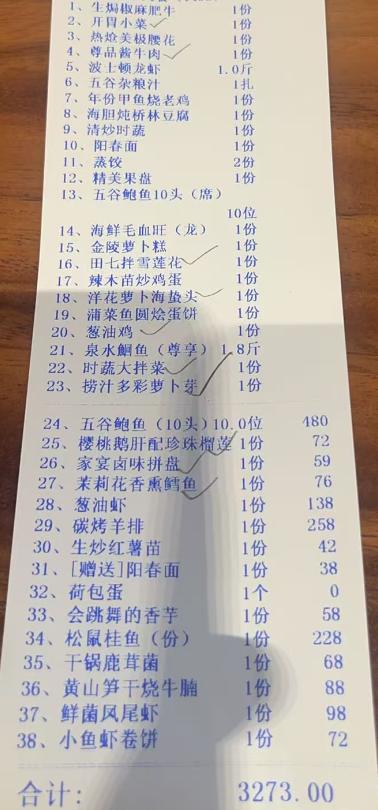 1、生焗椒麻肥牛 1份
2、开胃小菜 1份
3、热炝美极腰花 1份
4、尊品酱牛肉 1份
5、波士顿龙虾 1.0斤
6、五谷杂粮汁 1扎
7、年份甲鱼烧老鸡 1份
8、海胆炖桥林豆腐 1份
9、清炒时蔬 1份
10、阳春面 1份
11、蒸饺 2份
12、精美果盘 1份
13、五谷鲍鱼10头（席）
10位
14、海鲜毛血旺（龙） 1份
15、金陵萝卜糕 1份
16、田七拌雪莲花 1份
17、辣木苗炒鸡蛋 1份
18、洋花萝卜海蛰头 1份
19、蒲菜鱼圆烩蛋饼 1份
20、葱油鸡 1份
21、泉水鮰鱼（尊享） 1.8斤
22、时蔬大拌菜 1份
23、捞汁多彩萝卜芽 1份
24、五谷鲍鱼（10头）10.0位 480
25、樱桃鹅肝配珍珠榴莲 1份 72
26、家宴卤味拼盘 1份 59
27、茉莉花香熏鳕鱼 1份 76
28、葱油虾 1份 138
29、碳烤羊排 1份 258
30、生炒红薯苗 1份 42
31、[赠送]阳春面 1份 38
32、荷包蛋 1个 0
33、会跳舞的香芋 1份 58
34、松鼠桂鱼（份） 1份 228
35、干锅鹿茸菌 1份 68
36、黄山笋干烧牛腩 1份 88
37、鲜菌凤尾虾 1份 98
38、小鱼虾卷饼 1份 72
合计: 3273.00